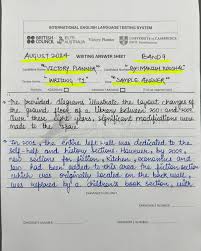 INTERNATIONAL ENGLISH LANGUAGE TESTING SYSTEM
BRITISH COUNCIL
Victory Planner
UNIVERSITY of CAMBRIDGE
AUGUST 2024
WRITING ANSWER SHEET
BAND 9
"VICTORY PLANNER"
WRITING "1"
"SAMPLE ANSWER"
The provided diagrams illustrate the layout changes of
the ground floor of a library between 2001 and 2009.
Over these eight years, significant modifications were
made to the space.
In 2001, the entire left wall was dedicated to the
self-help and history sections. However, by 2009,
new sections for fiction, kitchen, economics and
law had been added to this area. The fiction section
which was originally located on the back wall,
was replaced by a children's book section, with